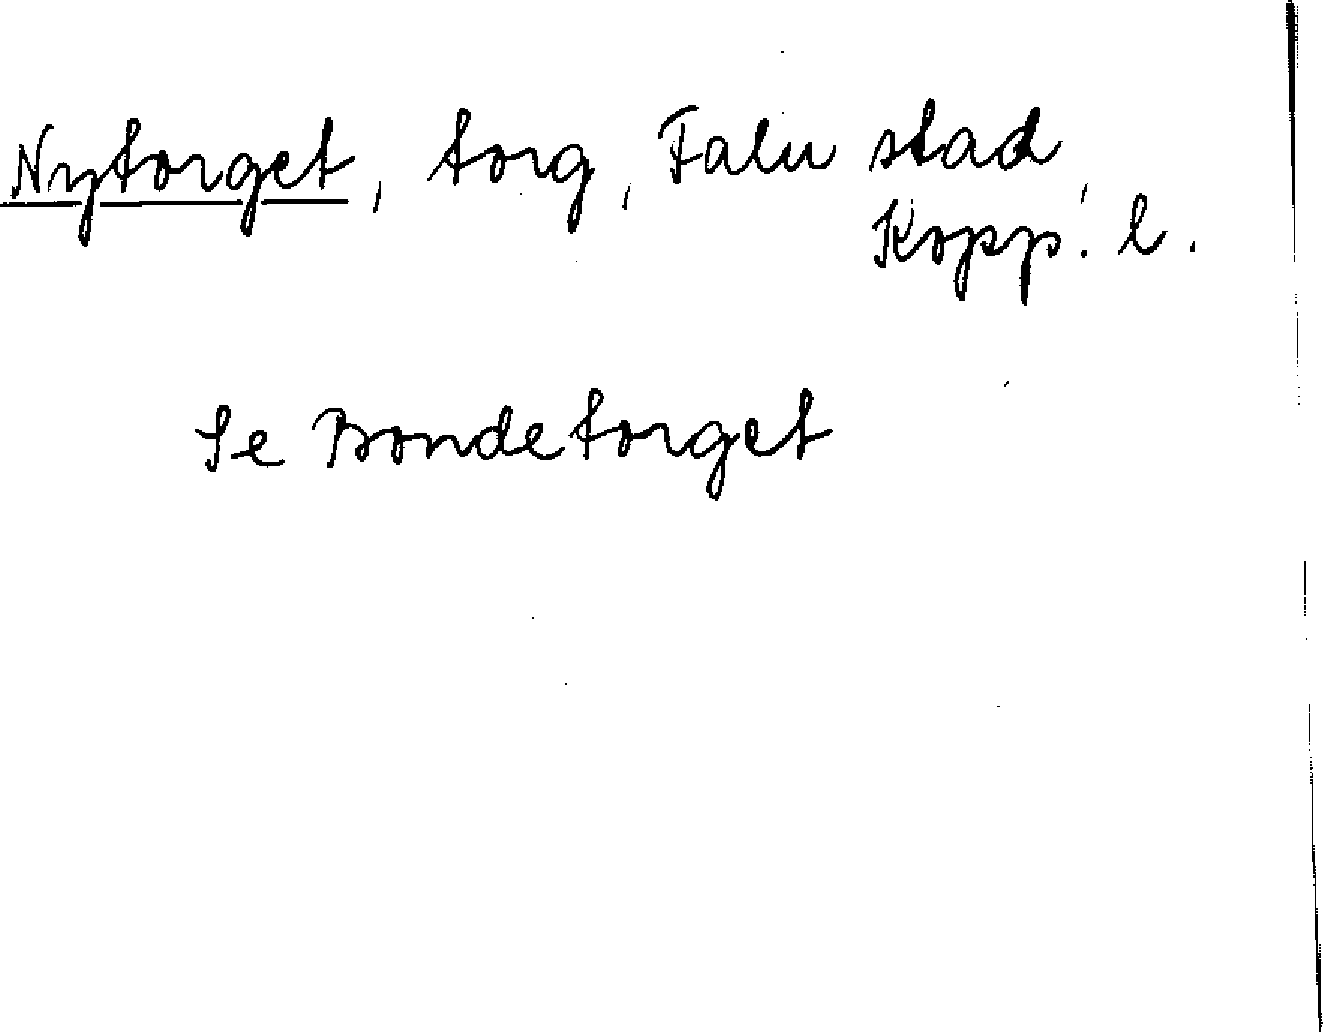 Nytorget, torg, Falu stad,
Kopp. l.
Se Bondetorget